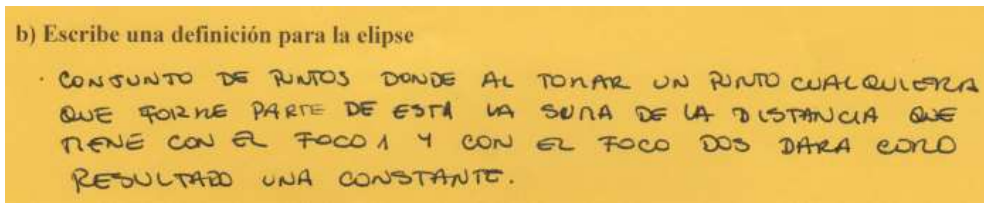 b) Escribe una definición para la elipse
· CONJUNTO DE PUNTOS DONDE AL TOMAR UN PUNTO CUALQUIERA
QUE FORME PARTE DE ESTA LA SUMA DE LA DISTANCIA QUE
TIENE CON EL FOCO 1 Y CON EL FOCO DOS DARA COMO
RESULTADO UNA CONSTANTE.